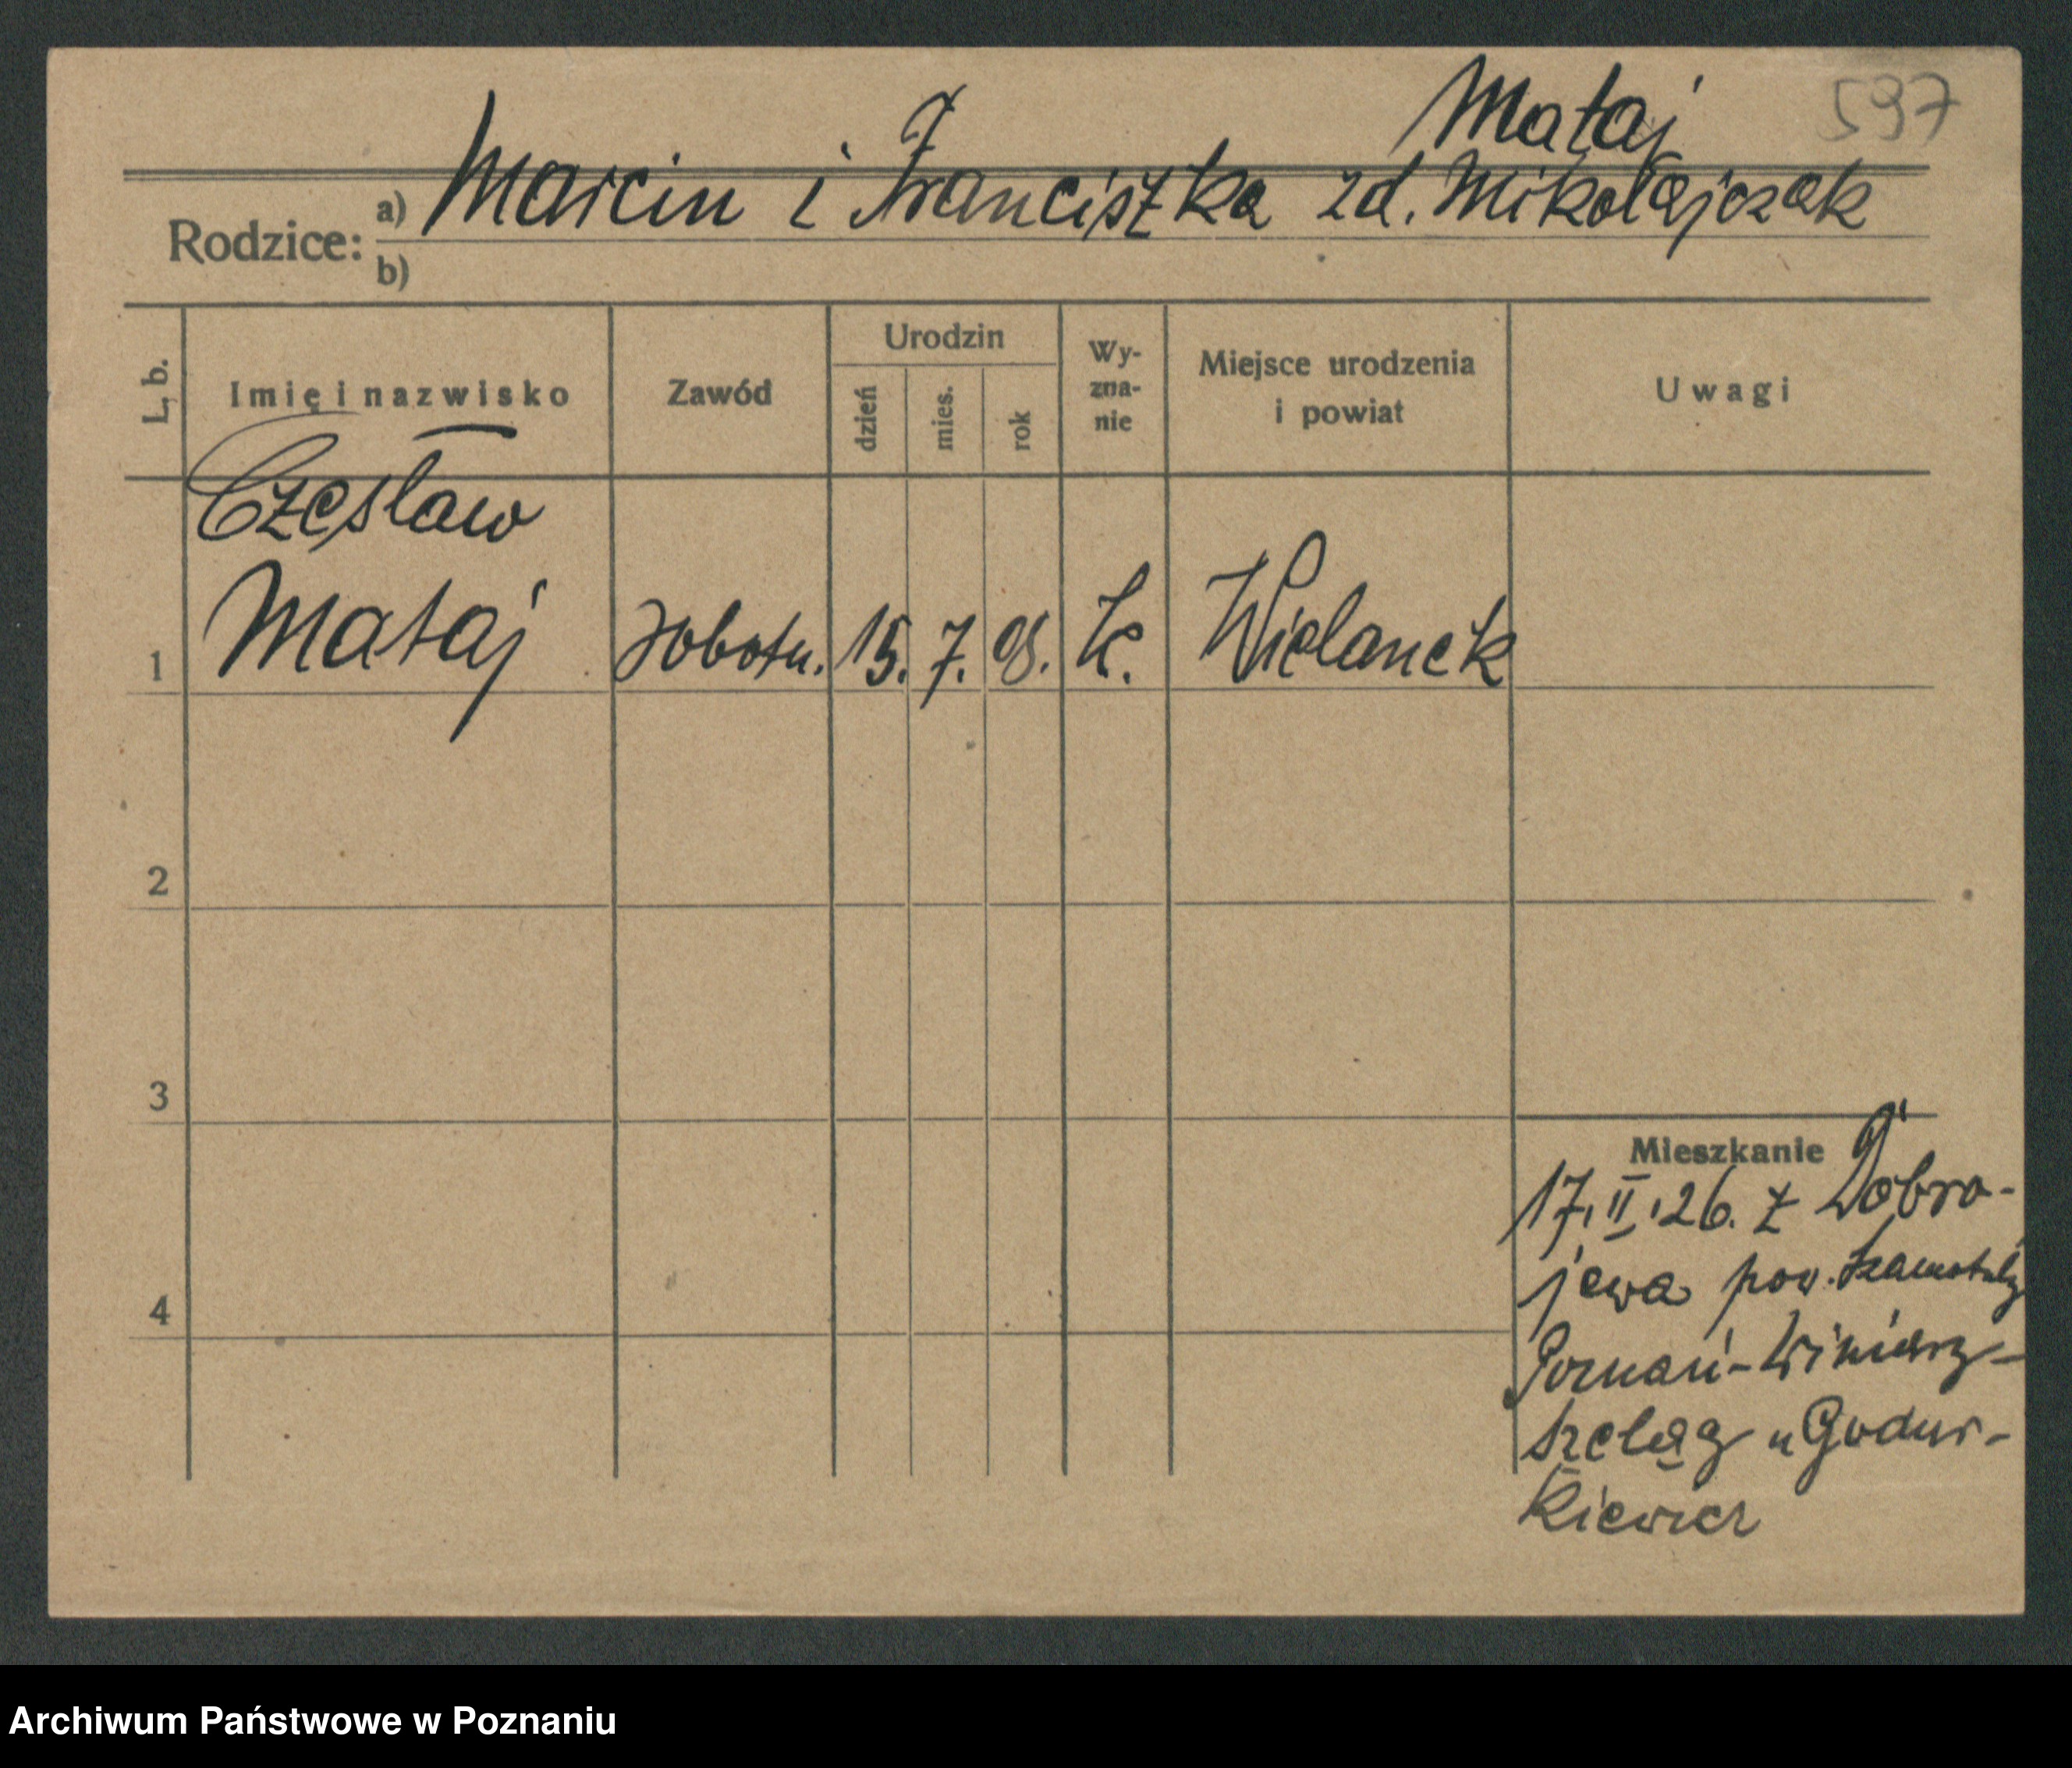 Mataj 597
Rodzice: a) Marcin i Franciszka zd. Mikołajczak
b)
L. b. Imię i nazwisko Zawód Urodzin dzień mies. rok Wy-zna-nie Miejsce urodzenia i powiat Uwagi
Czesław
1 Mataj robotn. 15. 7. 08. k. Wielonek
2
3
Mieszkanie
17. II. 26. z Dobro-
jewa pow. Szamotuły
4
Poznań-Winiary-
Szeląg u Godur-
kiewicz
Archiwum Państwowe w Poznaniu